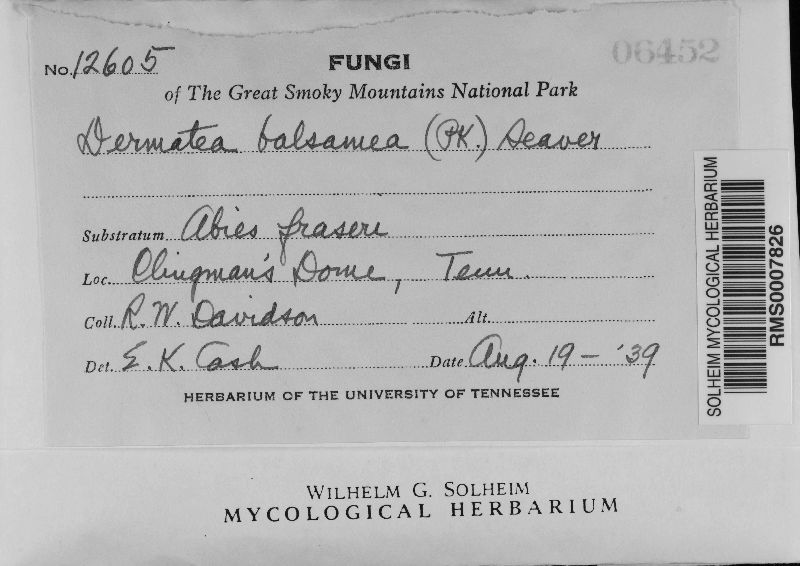 06452
No. 12605
FUNGI
of The Great Smoky Mountains National Park
Dermatea balsamea (PK.) Seaver
Substratum Abies fraseri
Loc. Clingman's Dome, Tenn.
Coll. R. W. Davidson Alt.
Det. E. K. Cash Date Aug. 19 - '39
HERBARIUM OF THE UNIVERSITY OF TENNESSEE
SOLHEIM MYCOLOGICAL HERBARIUM
RMS0007826
WILHELM G. SOLHEIM
MYCOLOGICAL HERBARIUM